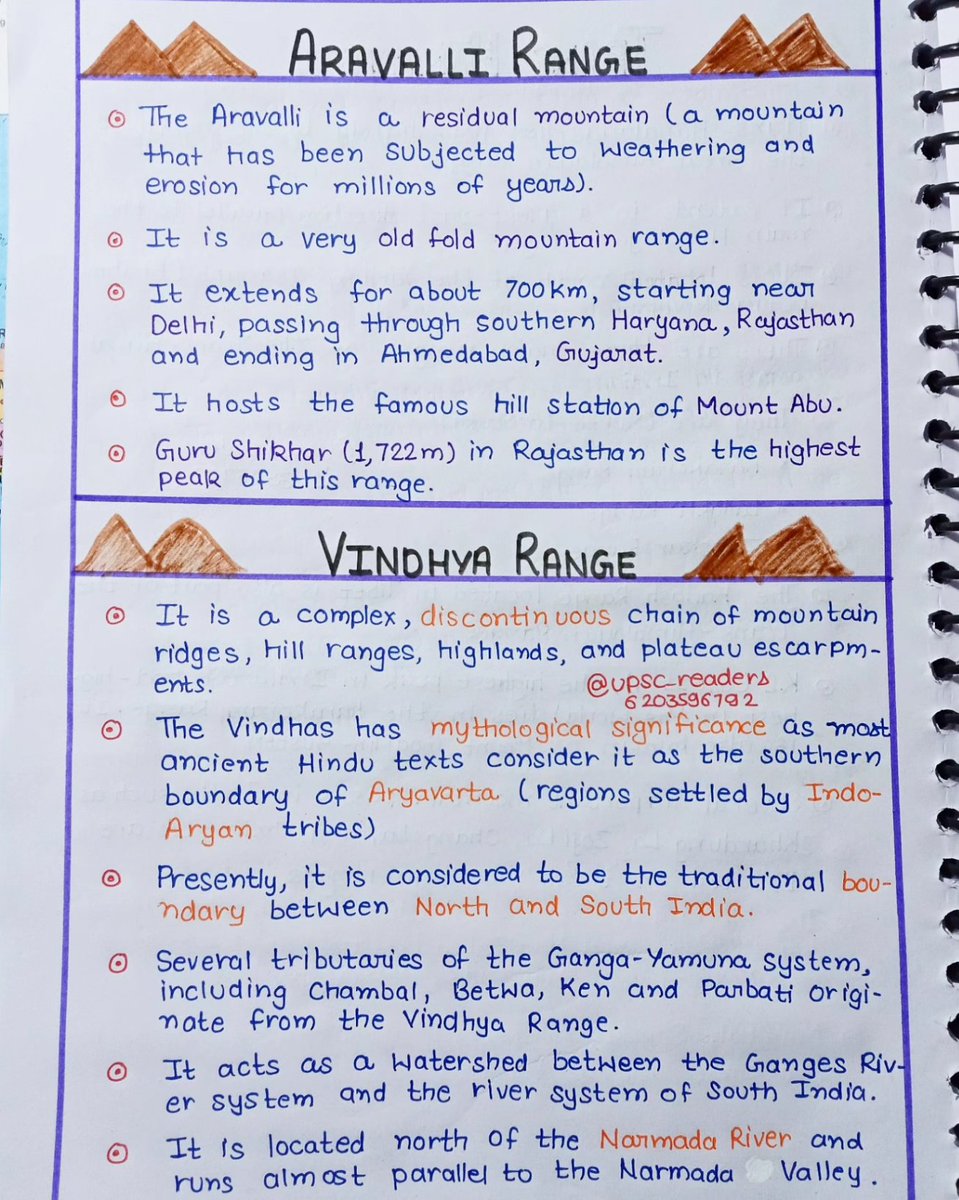 ARAVALLI RANGE
The Aravalli is a residual mountain (a mountain
that has been subjected to weathering and
erosion for millions of years).
It is a very old fold mountain range.
It extends for about 700km, starting near
Delhi, passing through southern Haryana, Rajasthan
and ending in Ahmedabad, Gujarat.
It hosts the famous hill station of Mount Abu.
Guru Shikhar (1,722m) in Rajasthan is the highest
peak of this range.
VINDHYA RANGE
It is a complex, discontinuous chain of mountain
ridges, hill ranges, highlands, and plateau escarpm-
ents.
@upsc_readers
6203596792
The Vindhas has mythological significance as most
ancient Hindu texts consider it as the southern
boundary of Aryavarta (regions settled by Indo-
Aryan tribes)
Presently, it is considered to be the traditional bou-
ndary between North and South India.
Several tributaries of the Ganga-Yamuna system,
including Chambal, Betwa, Ken and Parbati origi-
nate from the Vindhya Range.
It acts as a watershed between the Ganges Riv-
er system and the river system of South India.
It is located north of the Narmada River and
runs almost parallel to the Narmada Valley.